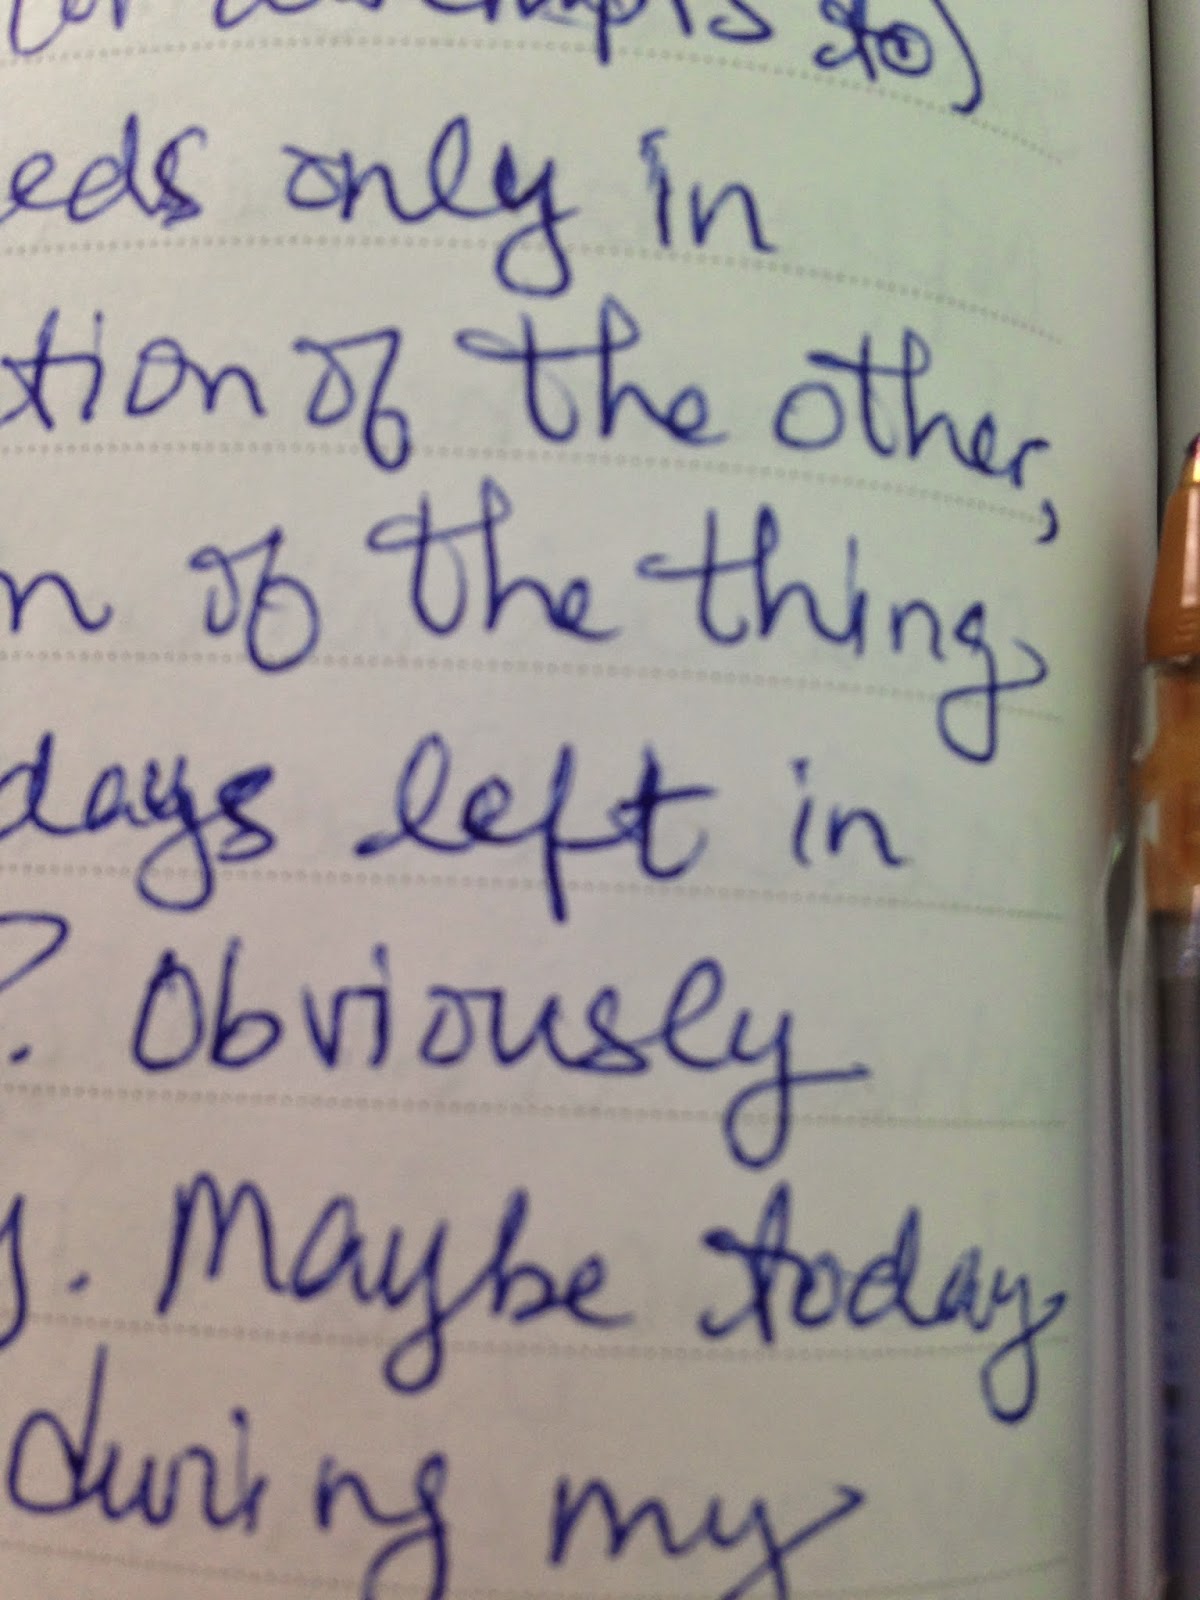 (or attempts to)
eds only in
tion of the other,
n of the thing,
days left in
?. Obviously
y. Maybe today
during my